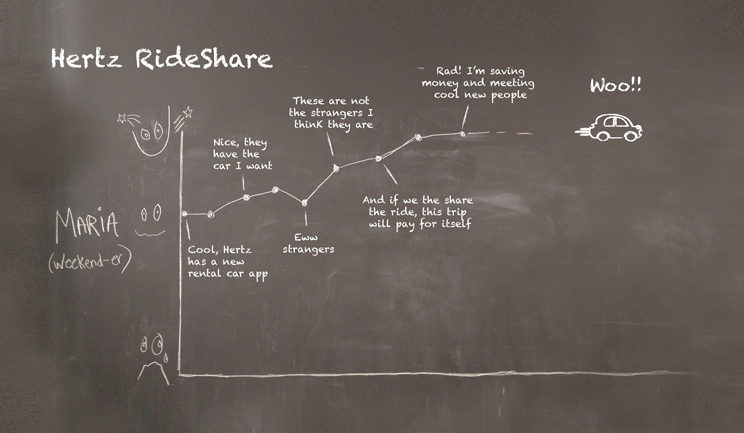 Hertz RideShare
Woo!!
Rad! I'm saving
money and meeting
cool new people
These are not
the strangers I
think they are
Nice, they
have the
car I want
And if we the share
the ride, this trip
will pay for itself
Maria
(weekend-er)
Eww
strangers
Cool, Hertz
has a new
rental car app